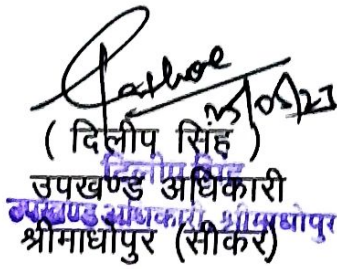 05/05/23
( दिलीप सिंह )
दिलीप सिंह
उपखण्ड अधिकारी
उपखण्ड अधिकारी, श्रीमाधोपुर
श्रीमाधोपुर (सीकर)